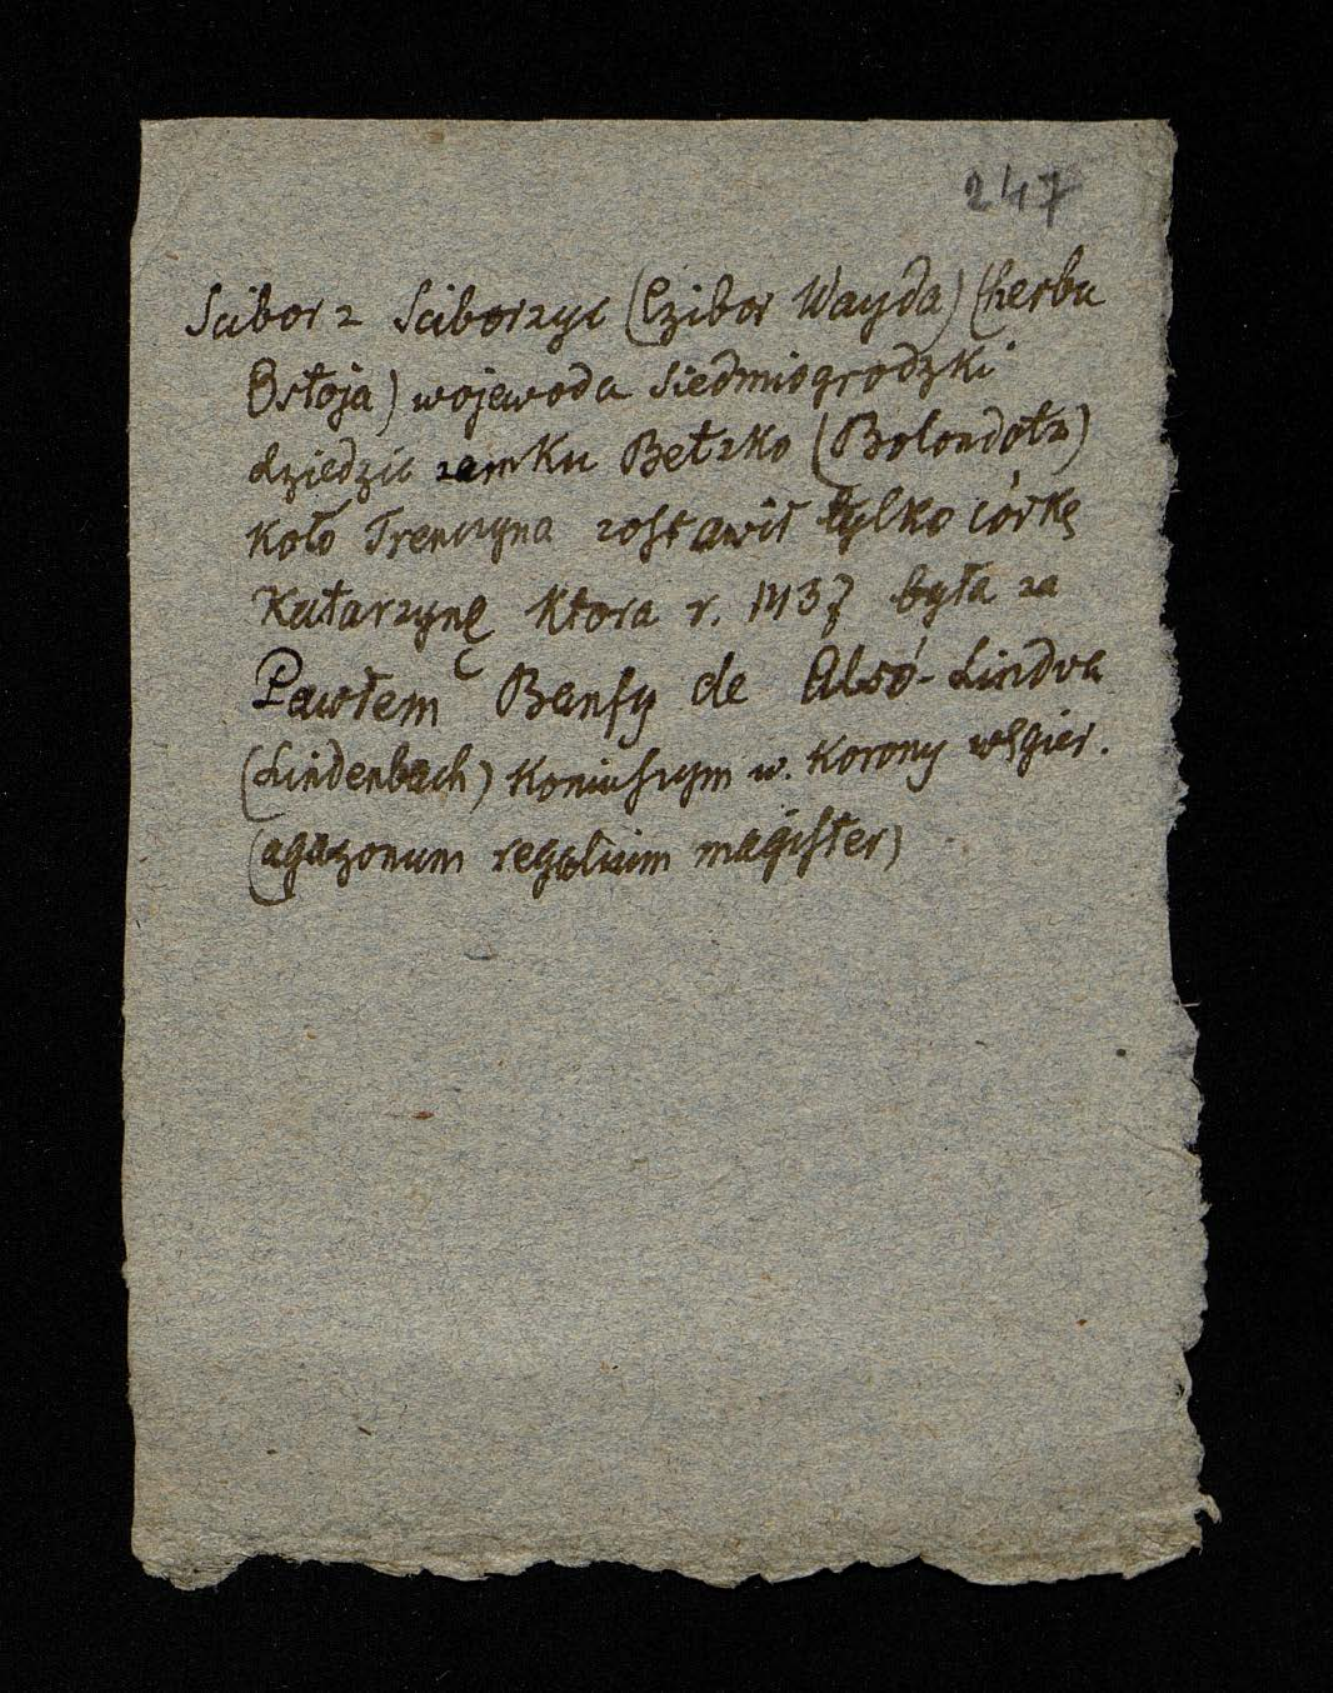 247
Scibor z Sciborzyc (Czibor Wayda) (herbu
Ostoja) wojewoda Siedmiogrodzki
dziedzic zamku Betzko (Bolondotz)
koło Trenczyna zostawił tylko córkę
Katarzynę ktora r. 1437 była za
Pawłem Banfy de Alsó-Lindva
(Lindenbach) Koniuszym w. Korony węgier.
(agazonum regalium magister)